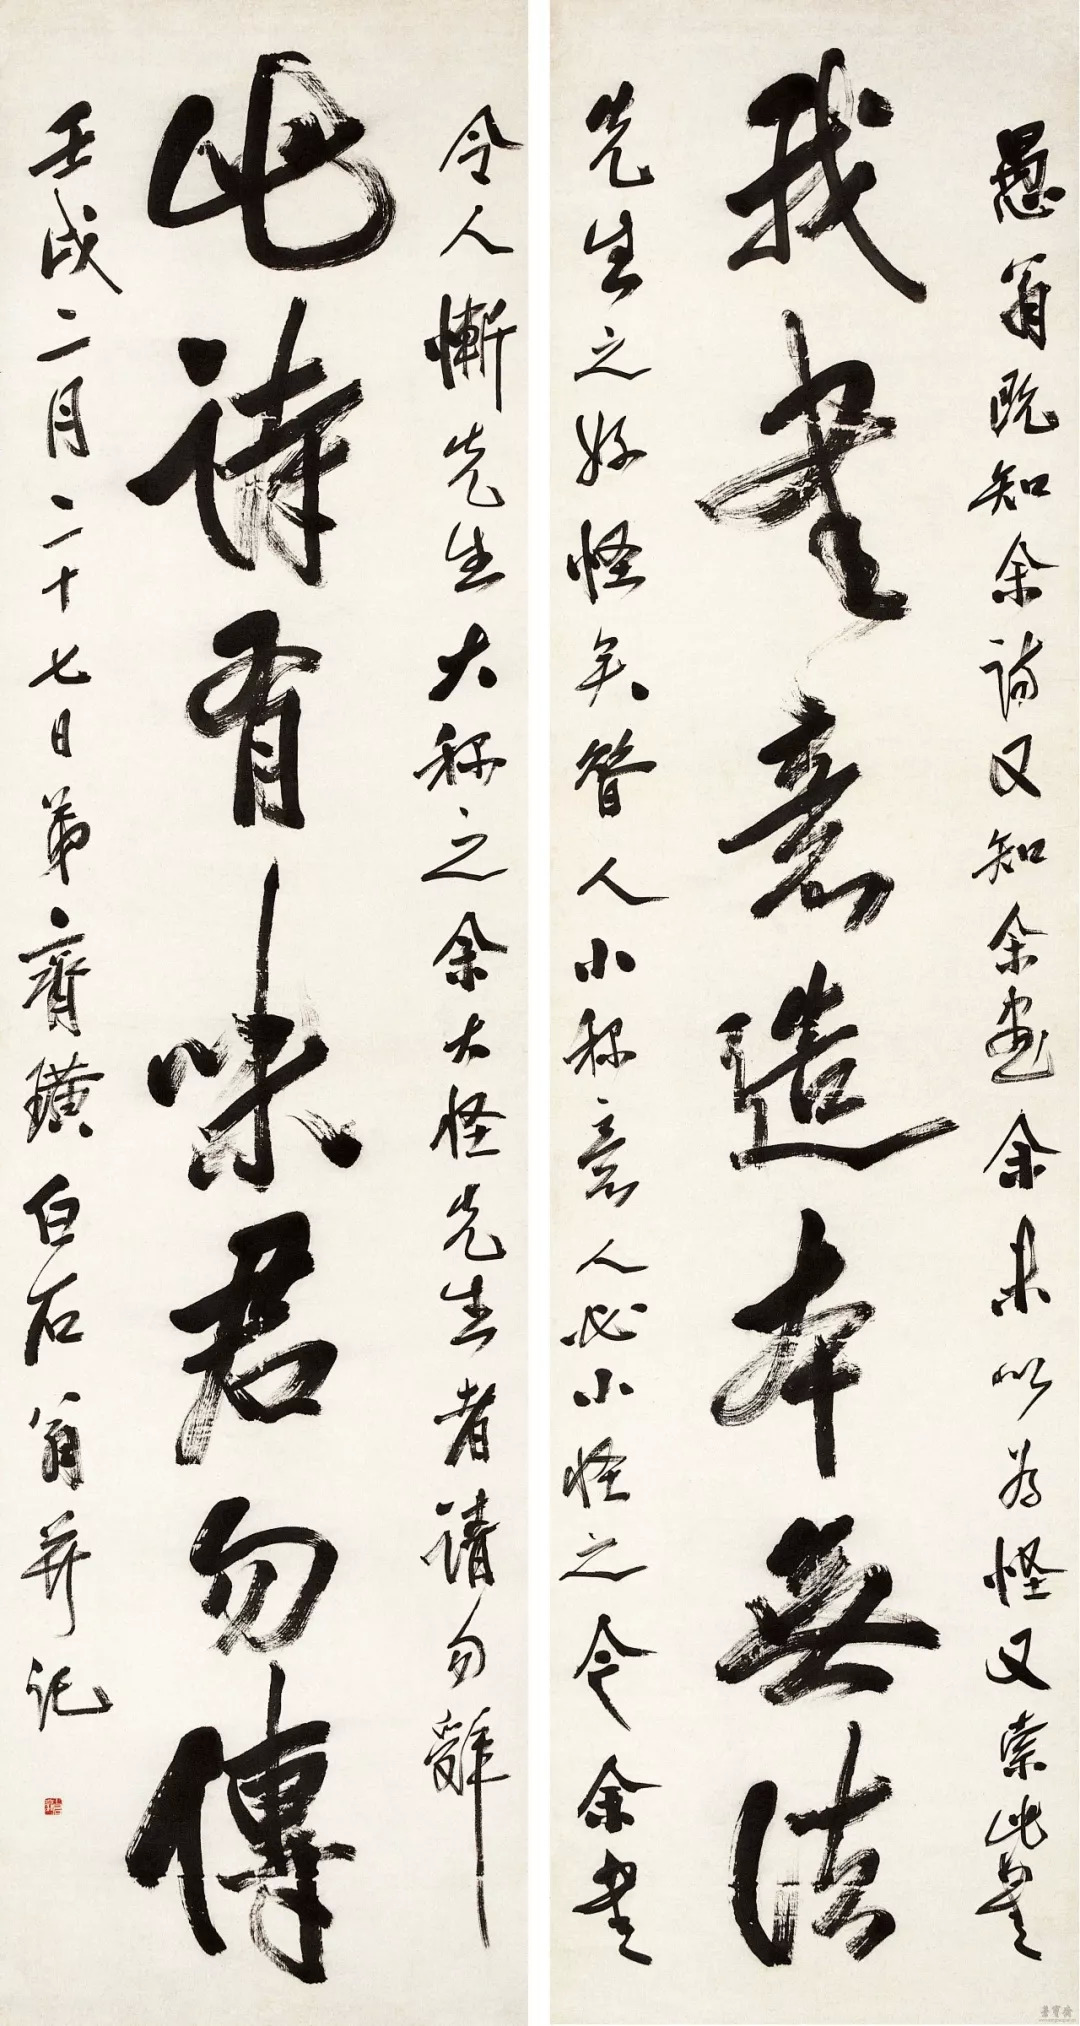 愚翁既知余詩又知余畫余未以為怪又索此是
我書意造本無法
先生之好怪矣昝人小称意人必小怪之今余書
令人慚先生大称之余大怪先生者請勿辭
此詩有味君勿傳
壬戌二月二十七日弟齊璜白石翁并記